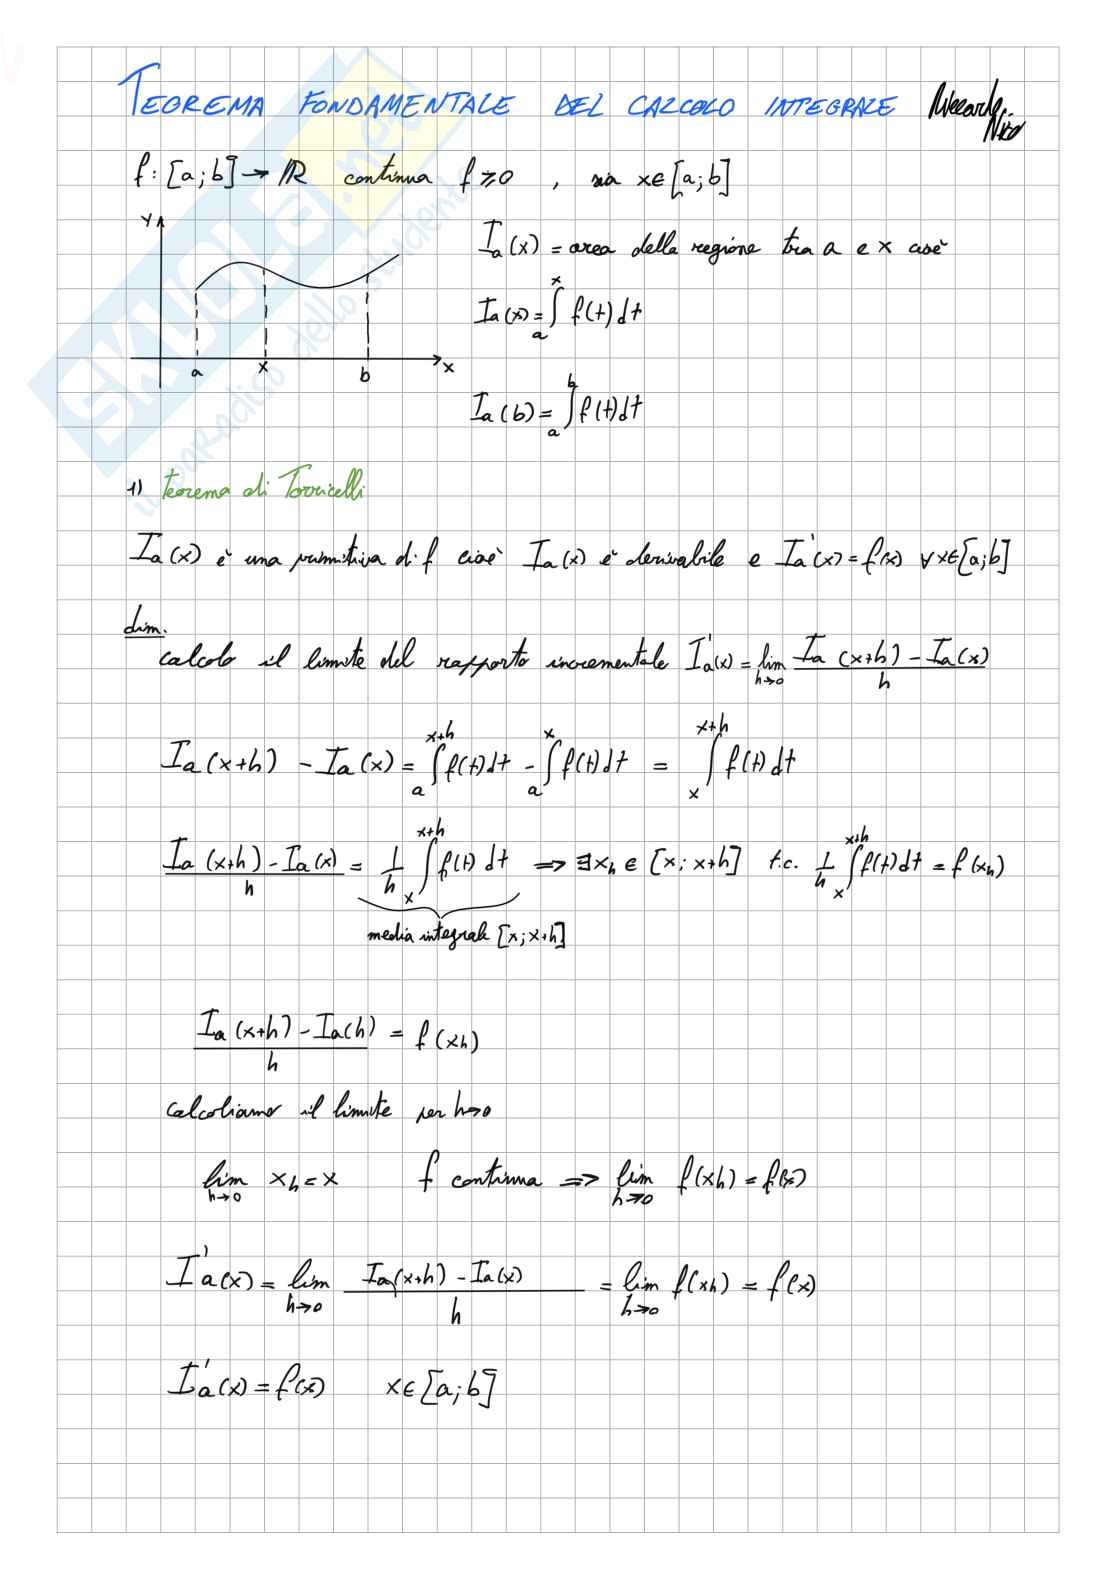 TEOREMA FONDAMENTALE DEL CALCOLO INTEGRALE
f: [a;b] → ℝ continua f ≥ 0 , sia x ∈ [a;b]
y
a x b x
I_a(x) = area della regione tra a e x cioè
I_a(x) = ∫_a^x f(t) dt
I_a(b) = ∫_a^b f(t) dt
1) teorema di Torricelli
I_a(x) è una primitiva di f cioè I_a(x) è derivabile e I_a'(x) = f(x) ∀ x ∈ [a;b]
dim.
calcolo il limite del rapporto incrementale I_a'(x) = lim_{h→0} (I_a(x+h) - I_a(x))/h
I_a(x+h) - I_a(x) = ∫_a^{x+h} f(t) dt - ∫_a^x f(t) dt = ∫_x^{x+h} f(t) dt
(I_a(x+h) - I_a(x))/h = 1/h ∫_x^{x+h} f(t) dt ⇒ ∃ x_h ∈ [x; x+h] t.c. 1/h ∫_x^{x+h} f(t) dt = f(x_h)
media integrale [x; x+h]
(I_a(x+h) - I_a(h))/h = f(x_h)
calcoliamo il limite per h→0
lim_{h→0} x_h = x f continua ⇒ lim_{h→0} f(x_h) = f(x)
I_a'(x) = lim_{h→0} (I_a(x+h) - I_a(x))/h = lim_{h→0} f(x_h) = f(x)
I_a'(x) = f(x) x ∈ [a;b]
SKUOLA.net
il paradiso dello studente